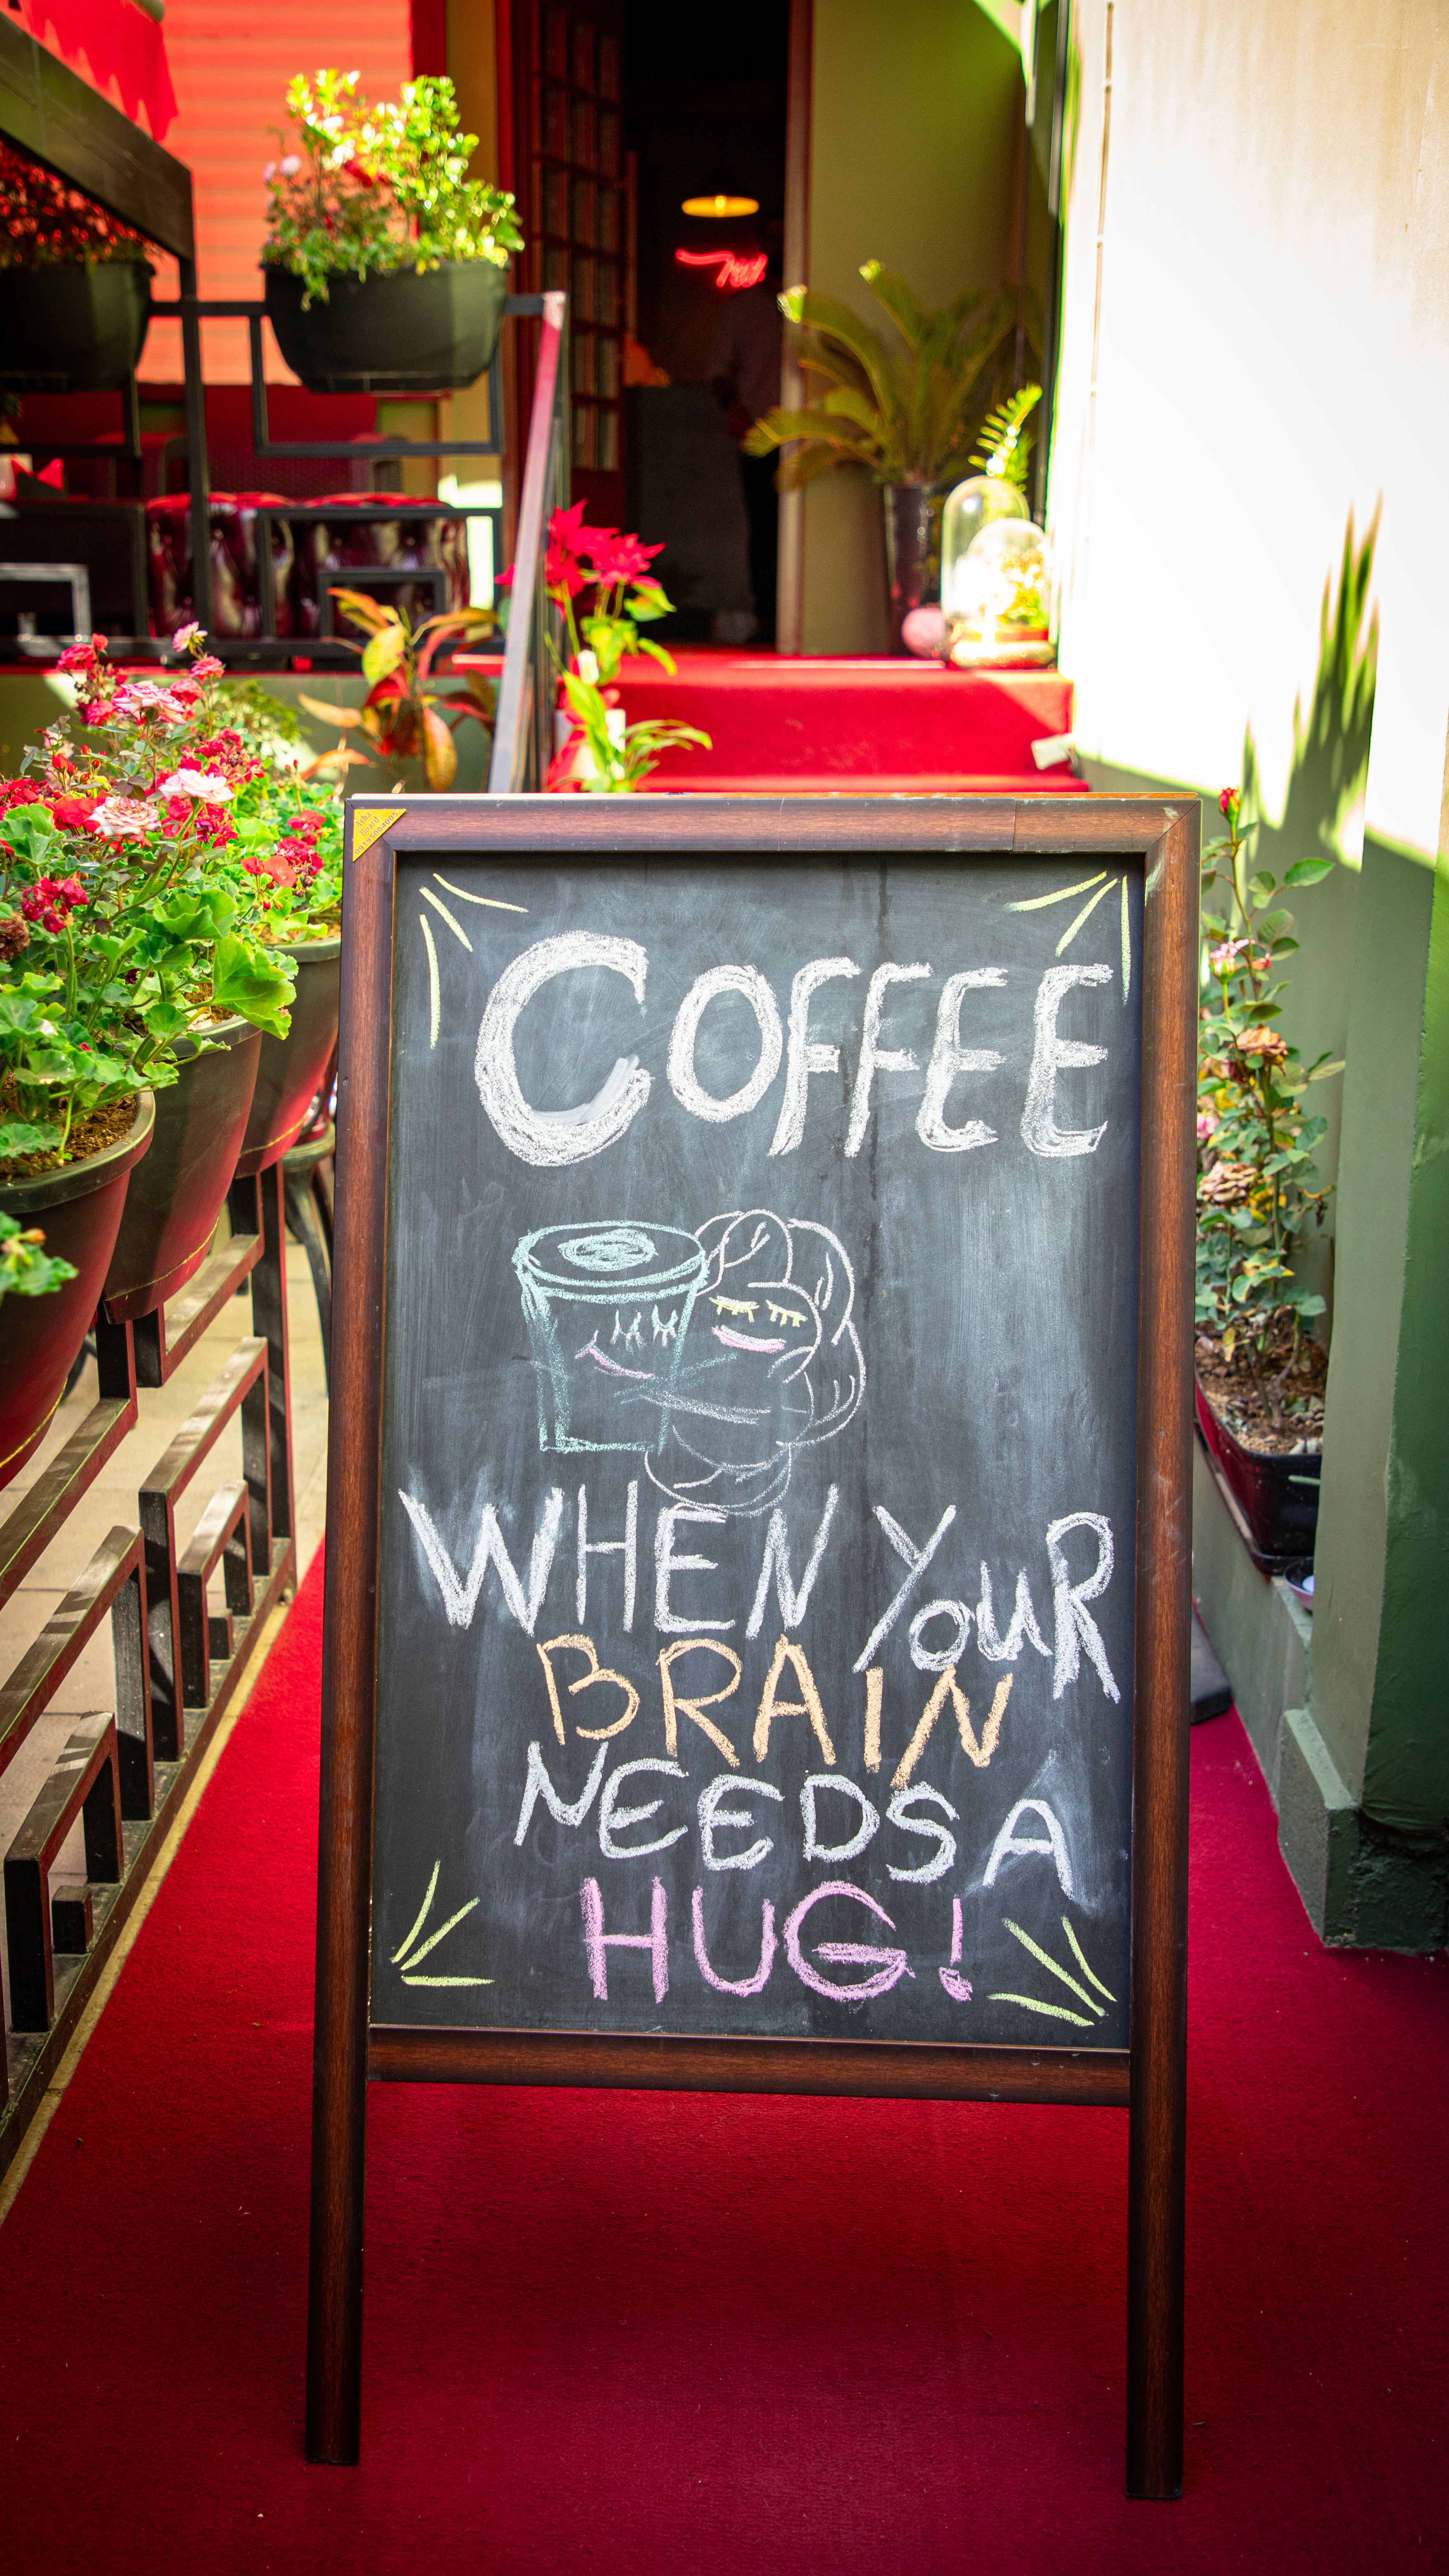 COFFEE
WHEN YouR
BRAIN
NEEDS A
HUG!